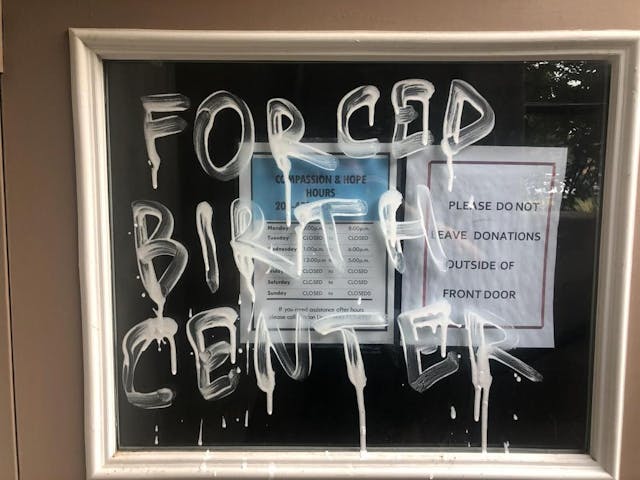 FORCED
BIRTH
CENTER
COMPASSION & HOPE
HOURS
Monday 8:00p.m.
Tuesday CLOSED to CLOSED
Wednesday to 6:00p.m.
12:00p.m. to 5:00p.m.
CLOSED to CLOSED
Saturday CLOSED to CLOSED
Sunday CLOSED to CLOSED
If you need assistance after hours
please call
PLEASE DO NOT
LEAVE DONATIONS
OUTSIDE OF
FRONT DOOR